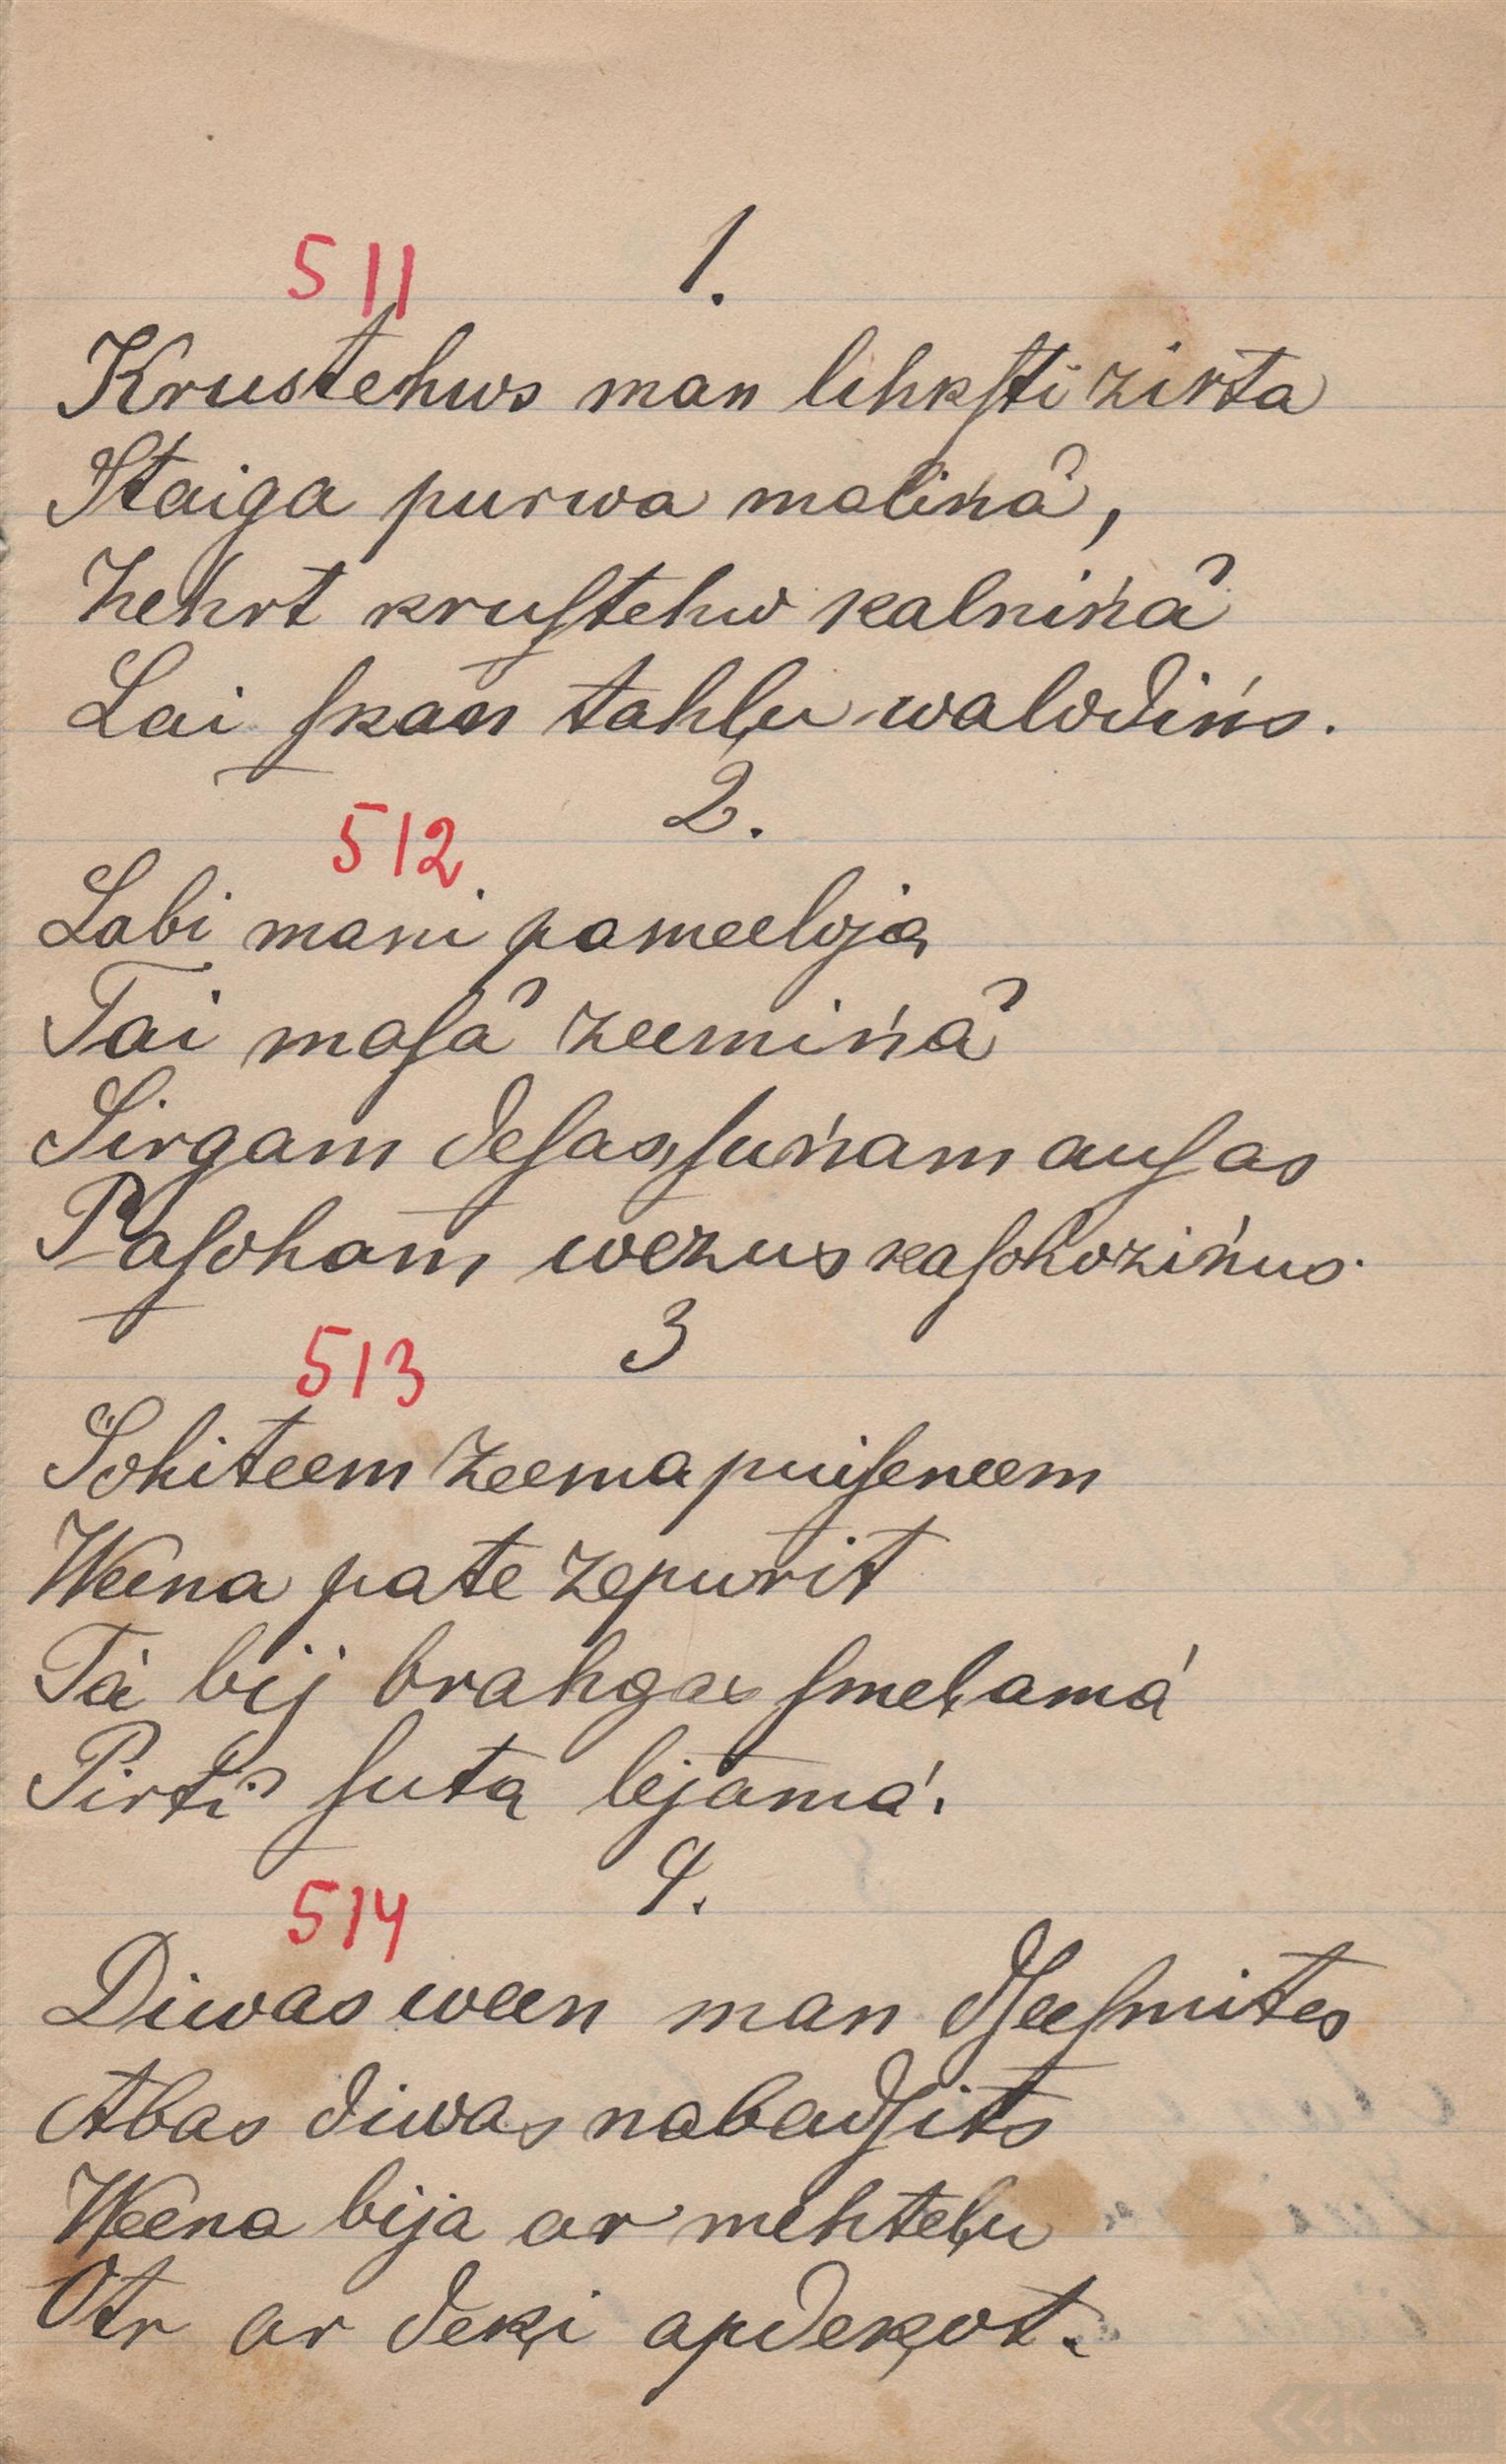 511 1.
Krustehws man lihkſti zirta
Staiga purwa malińâ,
Zehrt kruſtehw kalnińâ
Lai ſkan tahļu walodińs.
2.
512
Labi mani pameeloja
Tai maſâ zeemińâ
Sirgam deſas, ſuńam auſas
Paſcham wezus kaſchozińus.
3
513
Schiteem zeema puiſeneem
Weena pate zepurit
Tà bij brahgas ſmeļamá
Pirtî ſuta lejamá.
4.
514
Diwas ween man dſeeſmites
Abas diwas nabadſits
Weena bija ar mehteļu
Otr ar deķi apdeķot.